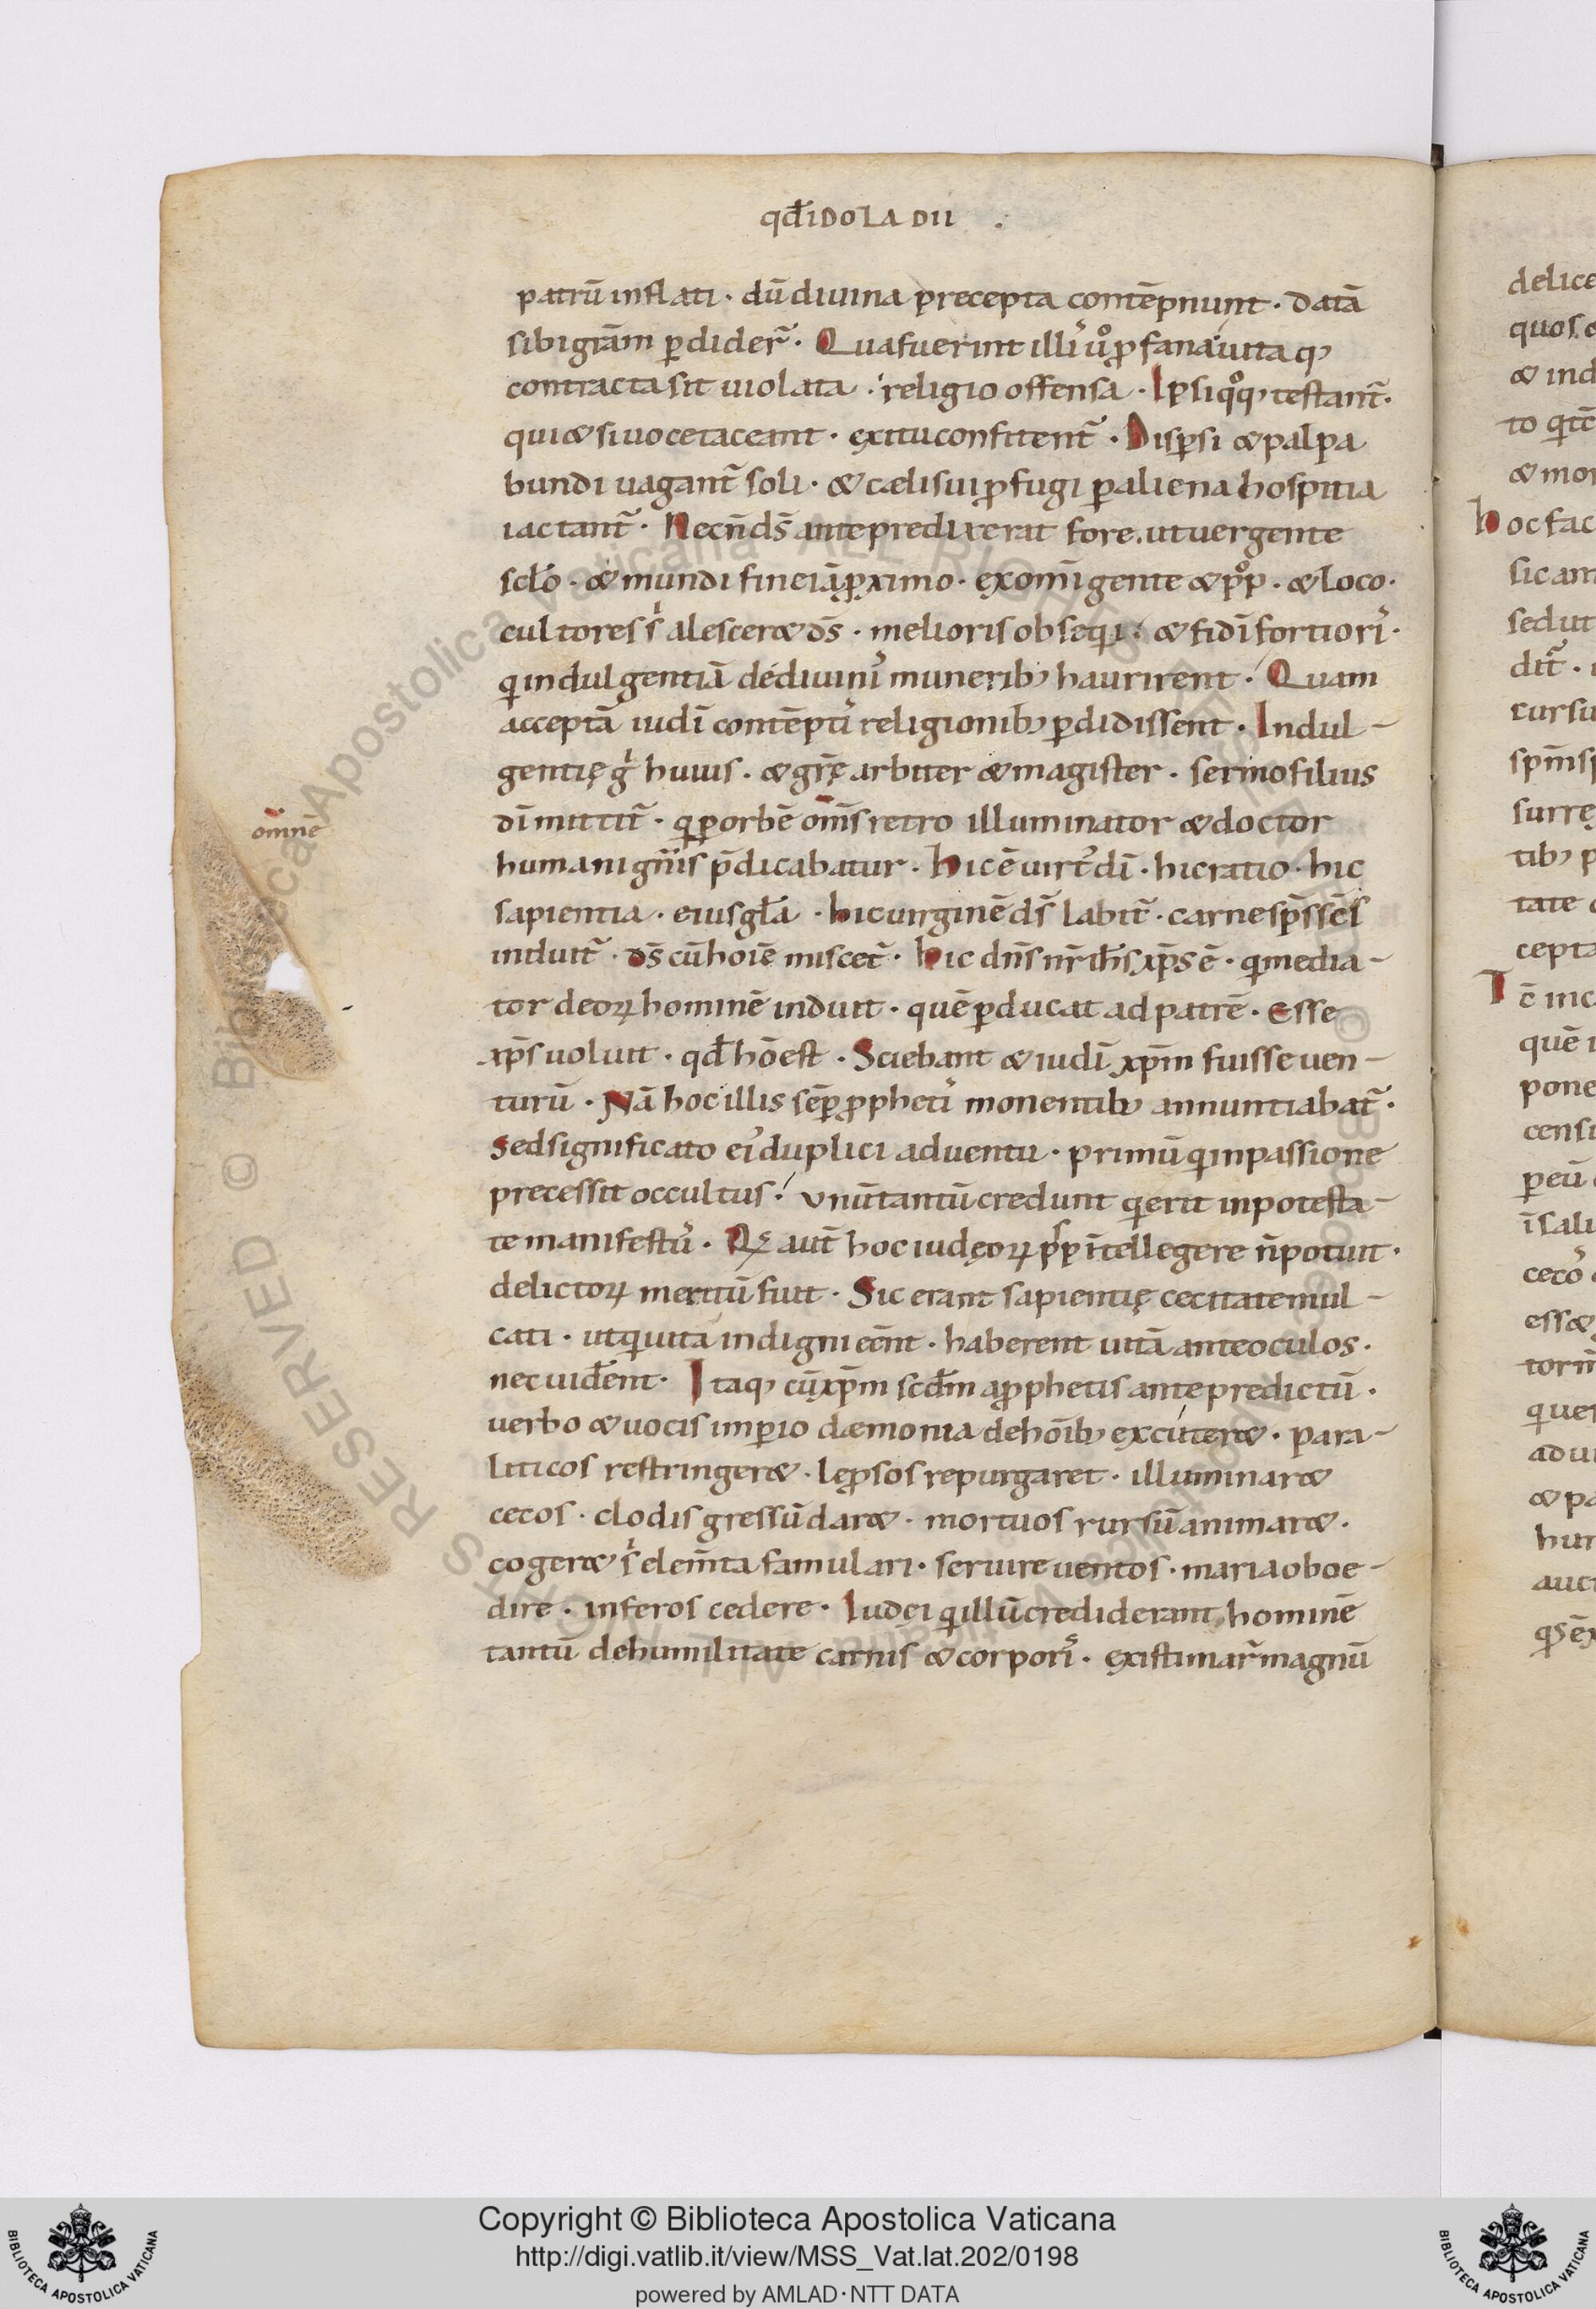 qđ IDOLA DII .
patrū inflati · dū diuina precepta contēpnunt · datā
sibi grām ꝑdider̄ · Qua fuerint illi᾿ uͦ ꝓfana uita q;
contracta sit uiolata · religio offensa · Ipsi qͦq; testant̄ ·
qui & si uoce taceant · exitu confitent̄ · Disꝑsi & palpa
bundi uagant̄ soli · & cæli sui ꝓfugi ꝑ aliena hospitia
iactant̄ · Necn̄ ds̄ ante predixerat fore · ut uergente
scl̄o · & mundi fine iā ꝓximo · ex omī gente & pͦp · & loco ·
cultores s᾿ alescer& ds̄ · melioris obseqii · & fidī fortiori᾿ ·
qi indulgentiā de diuini᾿ munerib; haurirent · Quam
acceptā iudī contēpti᾿ religionib; ꝑdidissent · Indul-
gentię g᾿ huius · & gr̄ę arbiter & magister · sermo filius
dī mittit̄ · qi ꝑ orbē om̄s retro illuminator & doctor
omnē
humani gn̄is p̄dicabatur · Hic ē uirt᾿ dī · hic ratio · hic
sapientia · eius gl̄a · hic uirginē ds̄ labit̄ · carne sp̄s sc̄s
induit̄ · ds̄ cū hoīe miscet̄ · Hic dn̄s nr̄ ih̄s xp̄s ē · qi media-
tor deoꝝ hominē induit · quē ꝑducat ad patrē · Esse
xp̄s uoluit · qđ hō est · Sciebant & iudī xp̄m fuisse uen-
turū · Nā hoc illis sēꝑ ꝓpheti᾿ monentib; annuntiabat̄ ·
Sed significato ei᾿ duplici aduentu · primū qi in passione
precessit occultus · unū tantū credunt qi erit in potesta-
te manifest᾿ · Qę aut̄ hoc iudęoꝝ pp̄ī intellegere n̄ potuit ·
delictoꝝ meritū fuit · Sic erant sapientię cecitate mul-
cati · ut qi uita indigni eēnt · haberent uitā ante oculos ·
nec uiđent · Itaq; cū xp̄m scđm a ꝓphetis ante predictū ·
uerbo & uocis imꝑio dæmonia de hoīb; excuter& · para-
liticos restringer& · leprosos repurgaret · illuminar&
cecos · clodis gressū dar& · mortuos rursū animar& ·
coger& s᾿ elem̄ta famulari · seruire uentos · maria oboe-
dire · inferos cedere · Iudęi qi illū crediderant hominē
tantū de humilitate carnis & corpori᾿ · existimar̄ magnū
delice
quos
& ind
& mor
Hoc fac
sic am
sed ut
cursu
surrę
tib; p
tate
cepta
quē
pone
censi
ꝑ eū
ess&
quer
& pa
hun
auct
Copyright © Biblioteca Apostolica Vaticana
http://digi.vatlib.it/view/MSS_Vat.lat.202/0198
powered by AMLAD·NTT DATA
BIBLIOTECA APOSTOLICA VATICANA
BIBLIOTECA APOSTOLICA VATICANA